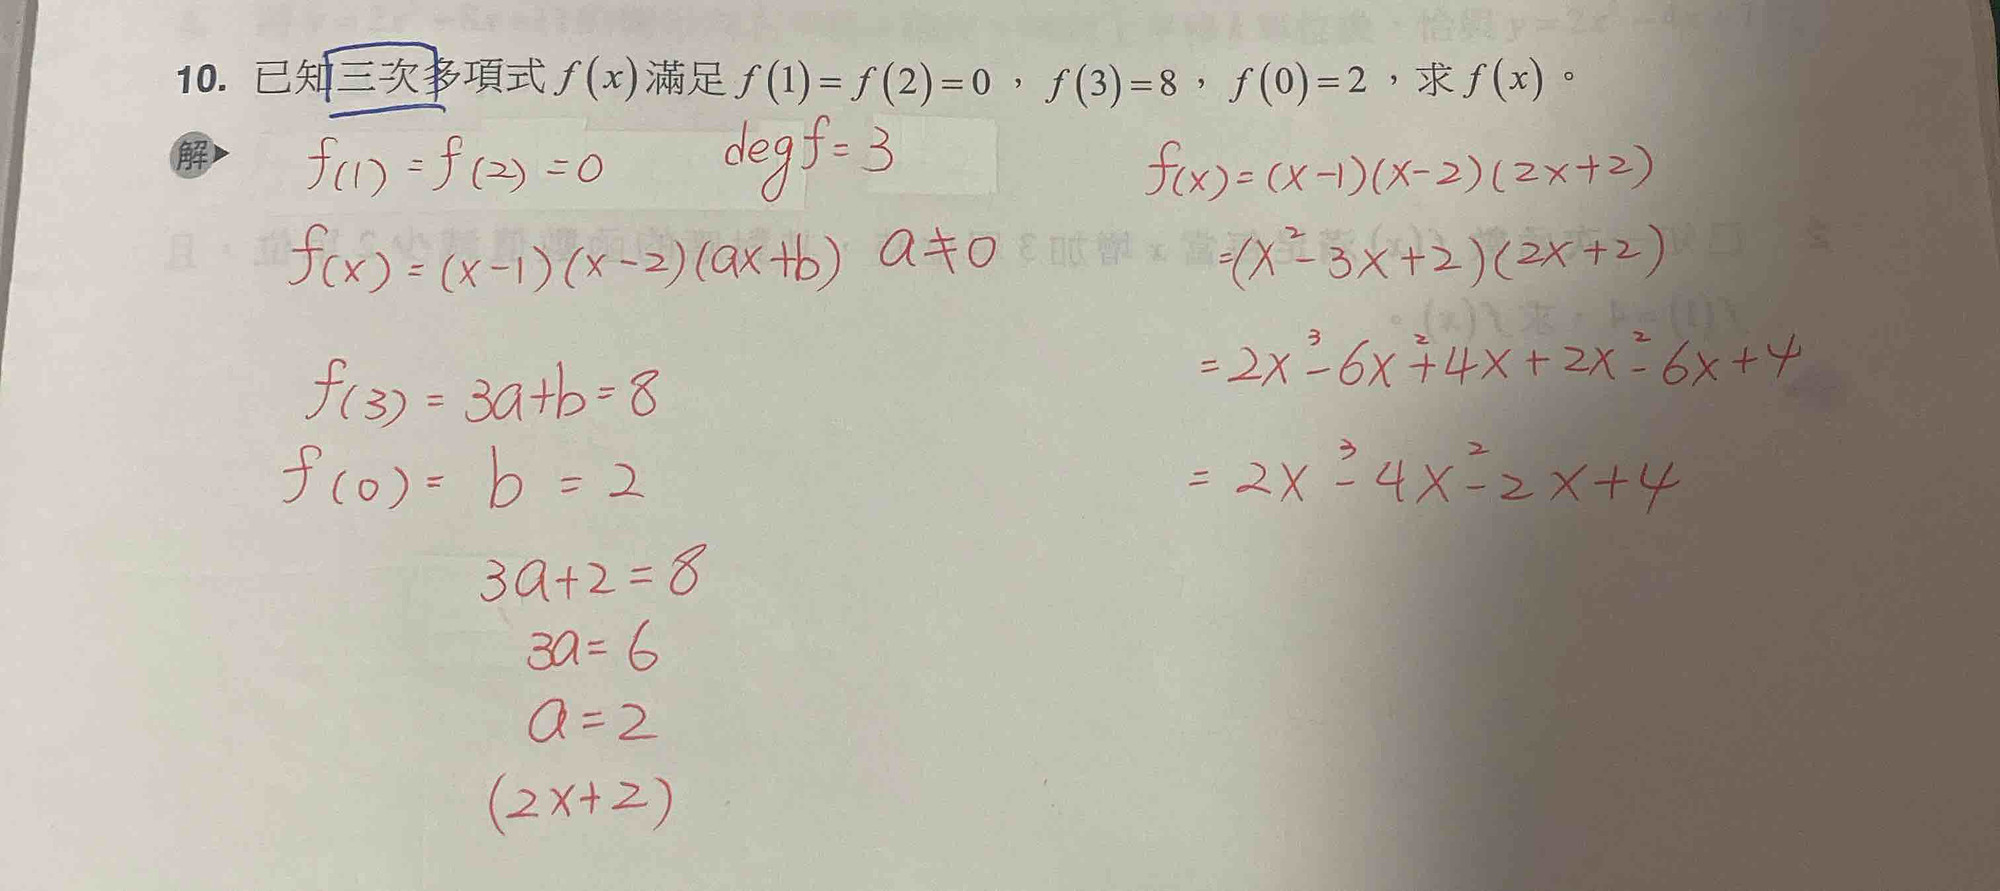 恰與 y=2x²-4x+7
10. 已知三次多項式 f(x) 滿足 f(1)=f(2)=0，f(3)=8，f(0)=2，求 f(x)。
解
f(1)=f(2)=0 deg f=3
f(x)=(x-1)(x-2)(ax+b) a≠0
f(3)=3a+b=8
f(0)= b =2
3a+2=8
3a=6
a=2
(2x+2)
f(x)=(x-1)(x-2)(2x+2)
=(x²-3x+2)(2x+2)
=2x³-6x²+4x+2x²-6x+4
=2x³-4x²-2x+4